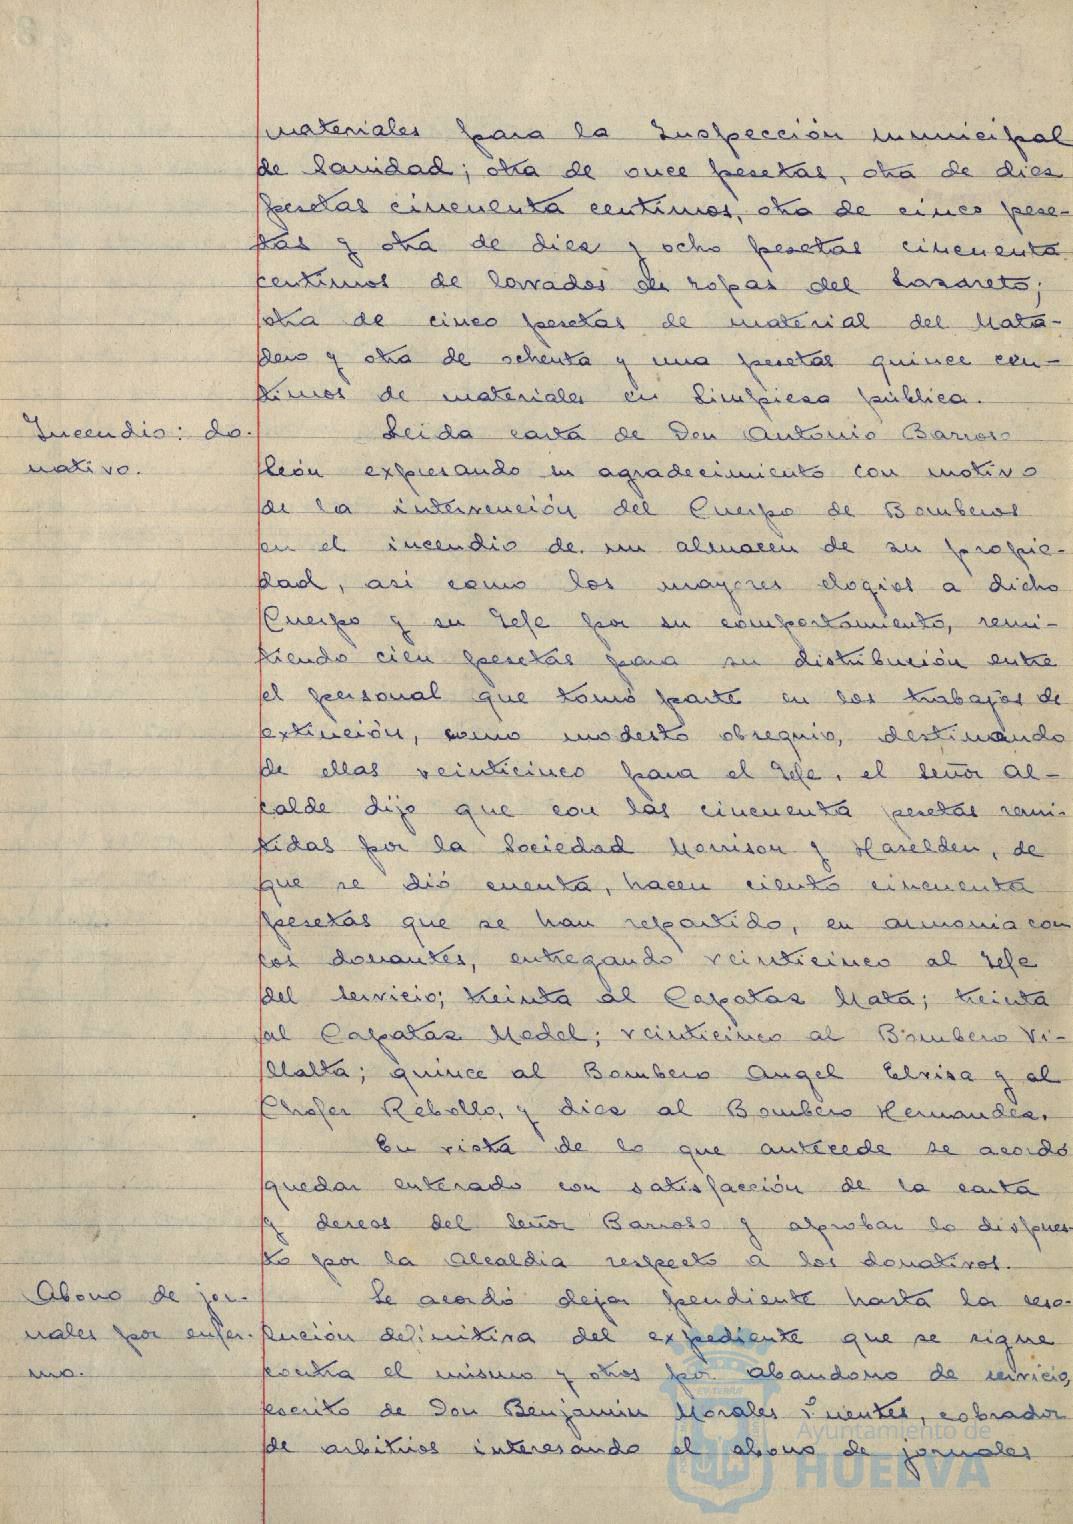 materiales para la Inspección municipal
de Sanidad; otra de once pesetas, otra de diez
pesetas cincuenta centimos, otra de cinco pese-
tas y otra de diez y ocho pesetas cincuenta
centimos de lavados de ropas del Lazareto;
otra de cinco pesetas de material del Mata-
dero y otra de ochenta y una pesetas quince cen-
timos de materiales en Limpieza pública.
Incendio: do-
nativo.
Leida carta de Don Antonio Barroso
León expresando su agradecimiento con motivo
de la intervención del Cuerpo de Bomberos
en el incendio de un almacén de su propie-
dad, así como los mayores elogios a dicho
Cuerpo y su Jefe por su comportamiento, remi-
tiendo cien pesetas para su distribución entre
el personal que tomó parte en los trabajos de
extinción, como modesto obsequio, destinando
de ellas veinticinco para el Jefe, el Señor Al-
calde dijo que con las cincuenta pesetas remi-
tidas por la Sociedad Morrison y Haselden, de
que se dió cuenta, hacen ciento cincuenta
pesetas que se han repartido, en armonia con
los donantes, entregando veinticinco al Jefe
del Servicio; treinta al Capataz Mata; treinta
al Capataz Medel; veinticinco al Bombero Vi-
llalta; quince al Bombero Angel Elvisa y al
Chofer Rebollo, y diez al Bombero Hernandez.
En vista de lo que antecede se acordó
quedar enterado con satisfacción de la carta
y deseos del Señor Barroso y aprobar lo dispues-
to por la Alcaldía respecto a los donativos.
Abono de jor-
nales por enfer-
mo.
Se acordó dejar pendiente hasta la reso-
lución definitiva del expediente que se sigue
contra el mismo y otros por abandono de servicio,
escrito de Don Benjamin Morales Fuentes, cobrador
de arbitrios interesando el abono de jornales
Ayuntamiento de
HUELVA